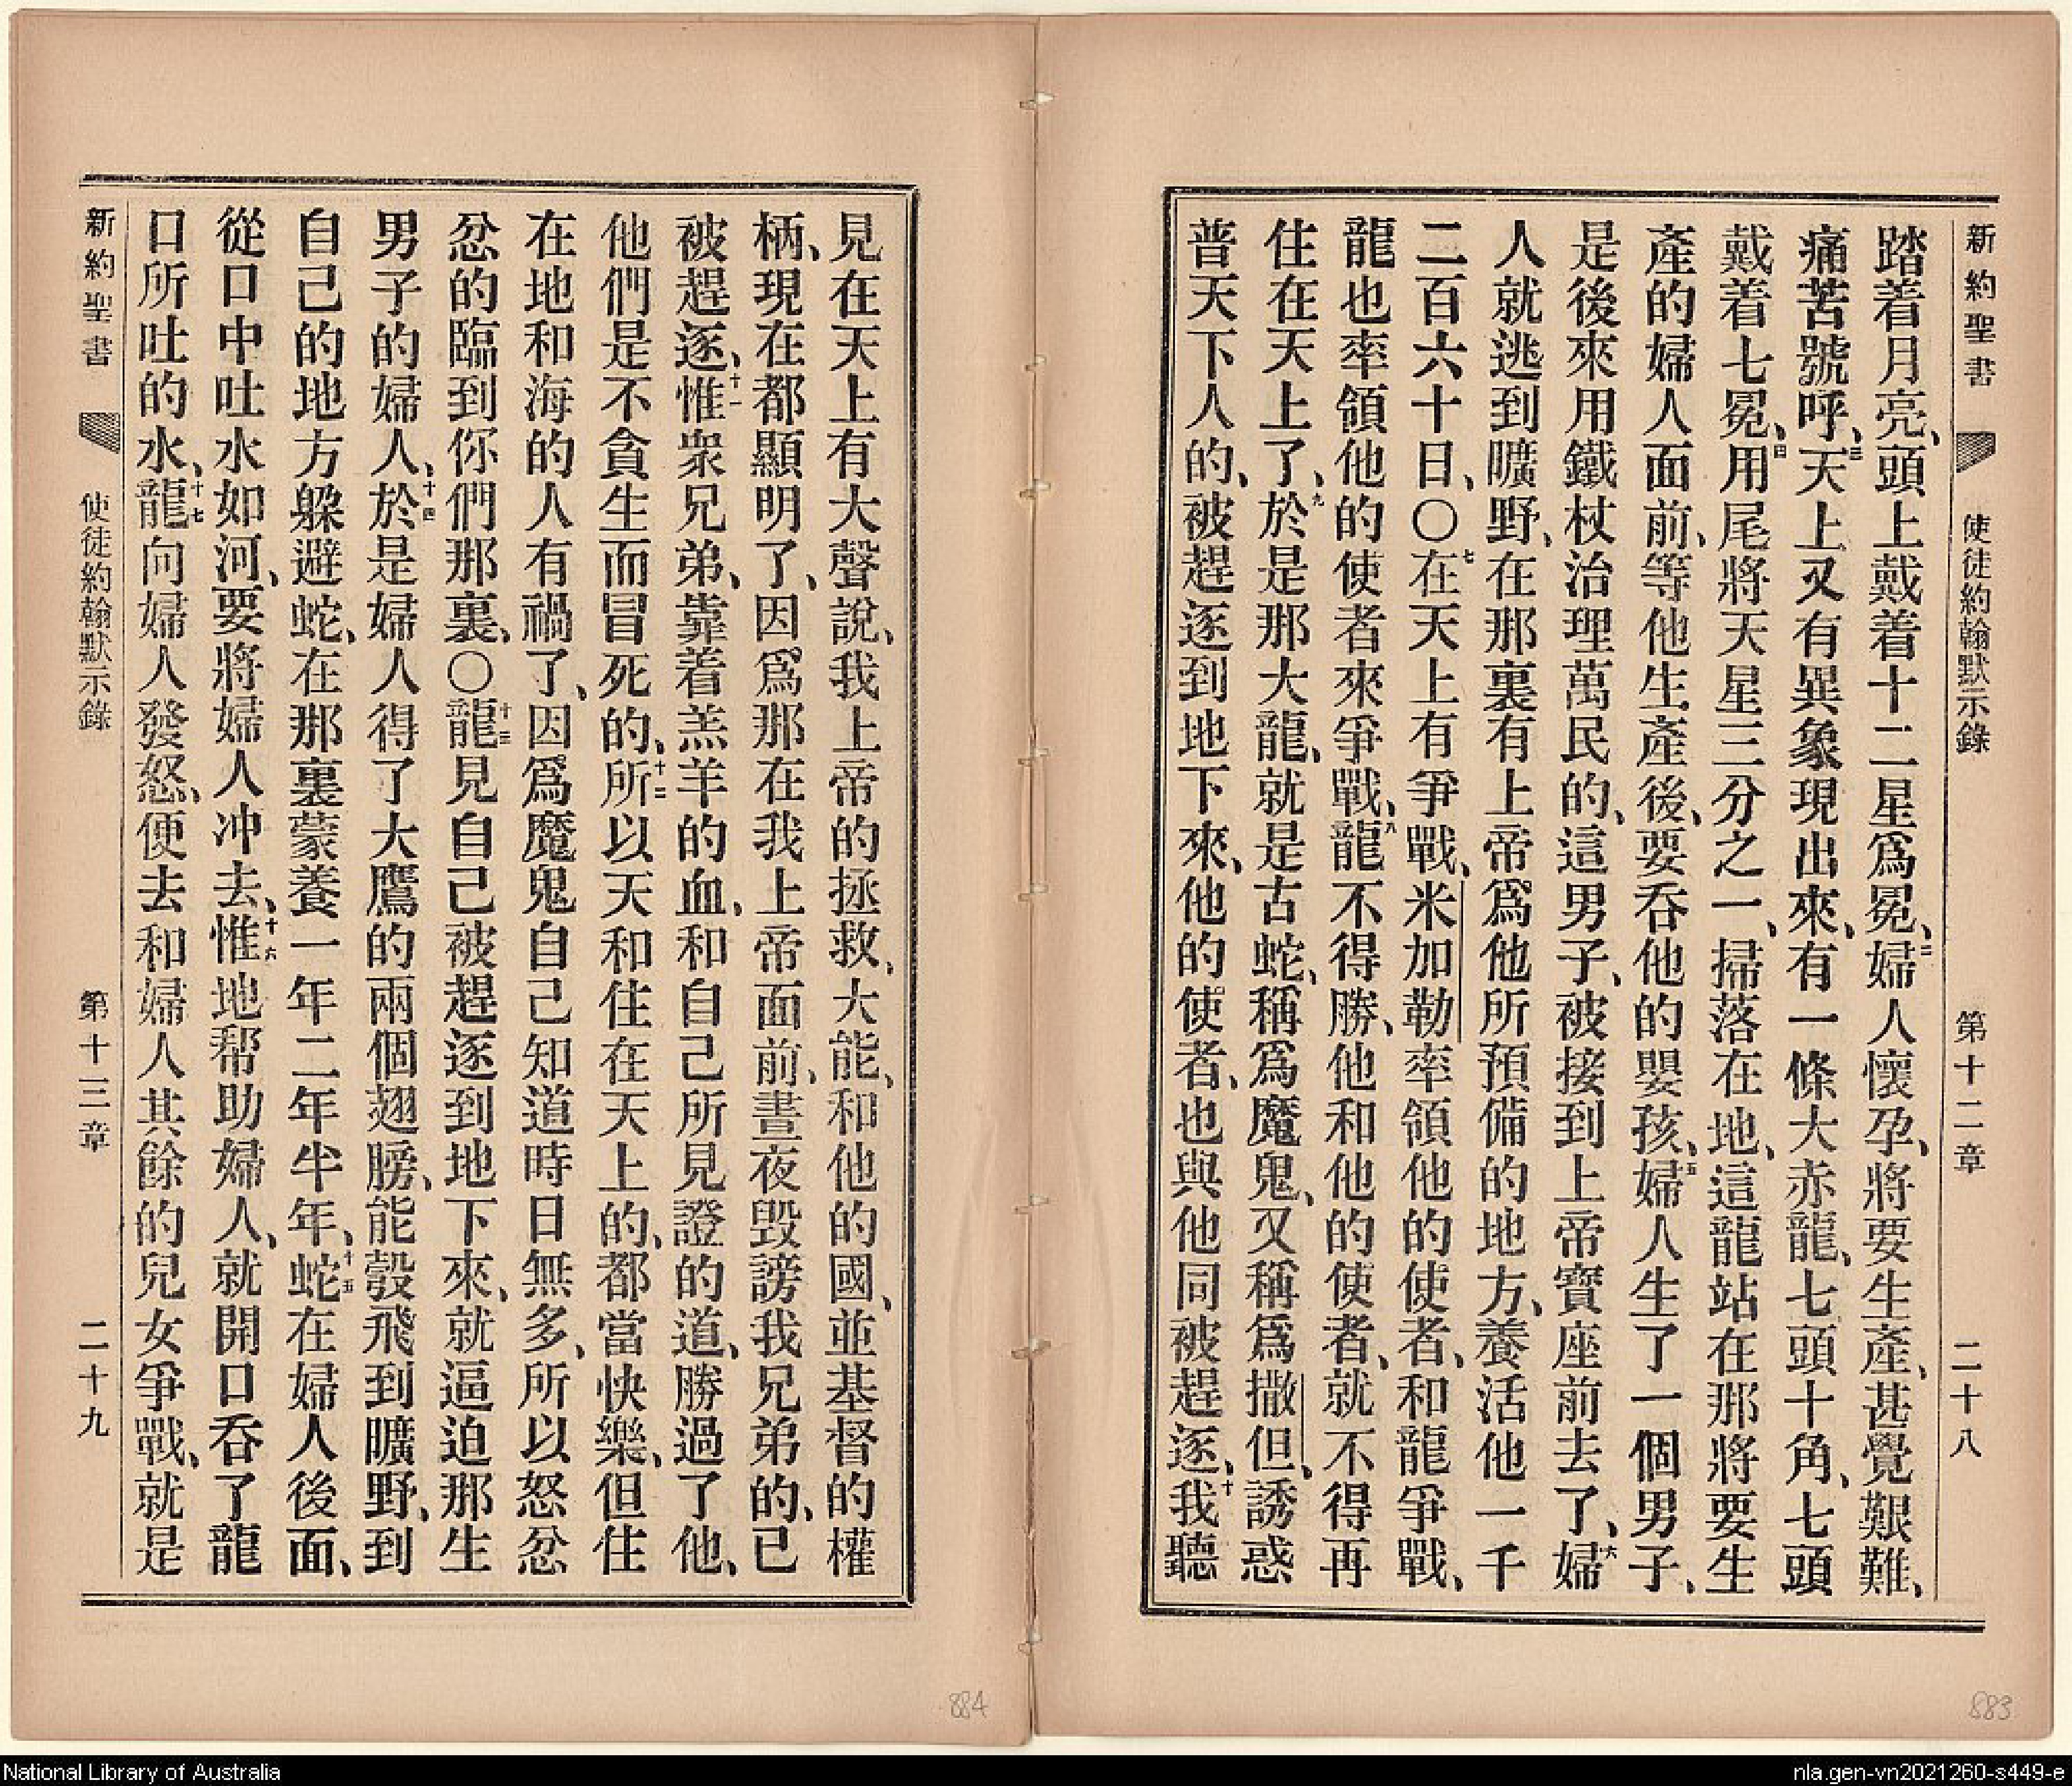 新約聖書 使徒約翰默示錄 第十二章 二十八
踏着月亮、頭上戴着十二星爲冕、二婦人懷孕、將要生產、甚覺艱難、
痛苦號呼、三天上又有異象現出來、有一條大赤龍、七頭十角、七頭
戴着七冕、四用尾將天星三分之一、掃落在地、這龍站在那將要生
產的婦人面前、等他生產後、要吞他的嬰孩、五婦人生了一個男子、
是後來用鐵杖治理萬民的、這男子、被接到上帝寶座前去了、六婦
人就逃到曠野、在那裏有上帝爲他所預備的地方、養活他一千
二百六十日、〇七在天上有爭戰、米加勒率領他的使者、和龍爭戰、
龍也率領他的使者來爭戰、八龍不得勝、他和他的使者、就不得再
住在天上了、九於是那大龍、就是古蛇、稱爲魔鬼、又稱爲撒但、誘惑
普天下人的、被趕逐到地下來、他的使者、也與他同被趕逐、十我聽
見在天上有大聲說、我上帝的拯救、大能、和他的國、並基督的權
柄、現在都顯明了、因爲那在我上帝面前、晝夜毀謗我兄弟的、已
被趕逐、十一惟衆兄弟、靠着羔羊的血、和自己所見證的道、勝過了他、
他們是不貪生而冒死的、十二所以天和住在天上的、都當快樂、但住
在地和海的人有禍了、因爲魔鬼自己知道時日無多、所以怒忿
忿的臨到你們那裏、〇十三龍見自己被趕逐到地下來、就逼迫那生
男子的婦人、十四於是婦人得了大鷹的兩個翅膀、能彀飛到曠野、到
自己的地方躲避蛇、在那裏蒙養一年二年半年、十五蛇在婦人後面、
從口中吐水如河、要將婦人冲去、十六惟地帮助婦人、就開口吞了龍
口所吐的水、十七龍向婦人發怒、便去和婦人其餘的兒女爭戰、就是
新約聖書 使徒約翰默示錄 第十三章 二十九
884
883
National Library of Australia
nla.gen-vn2021260-s449-e